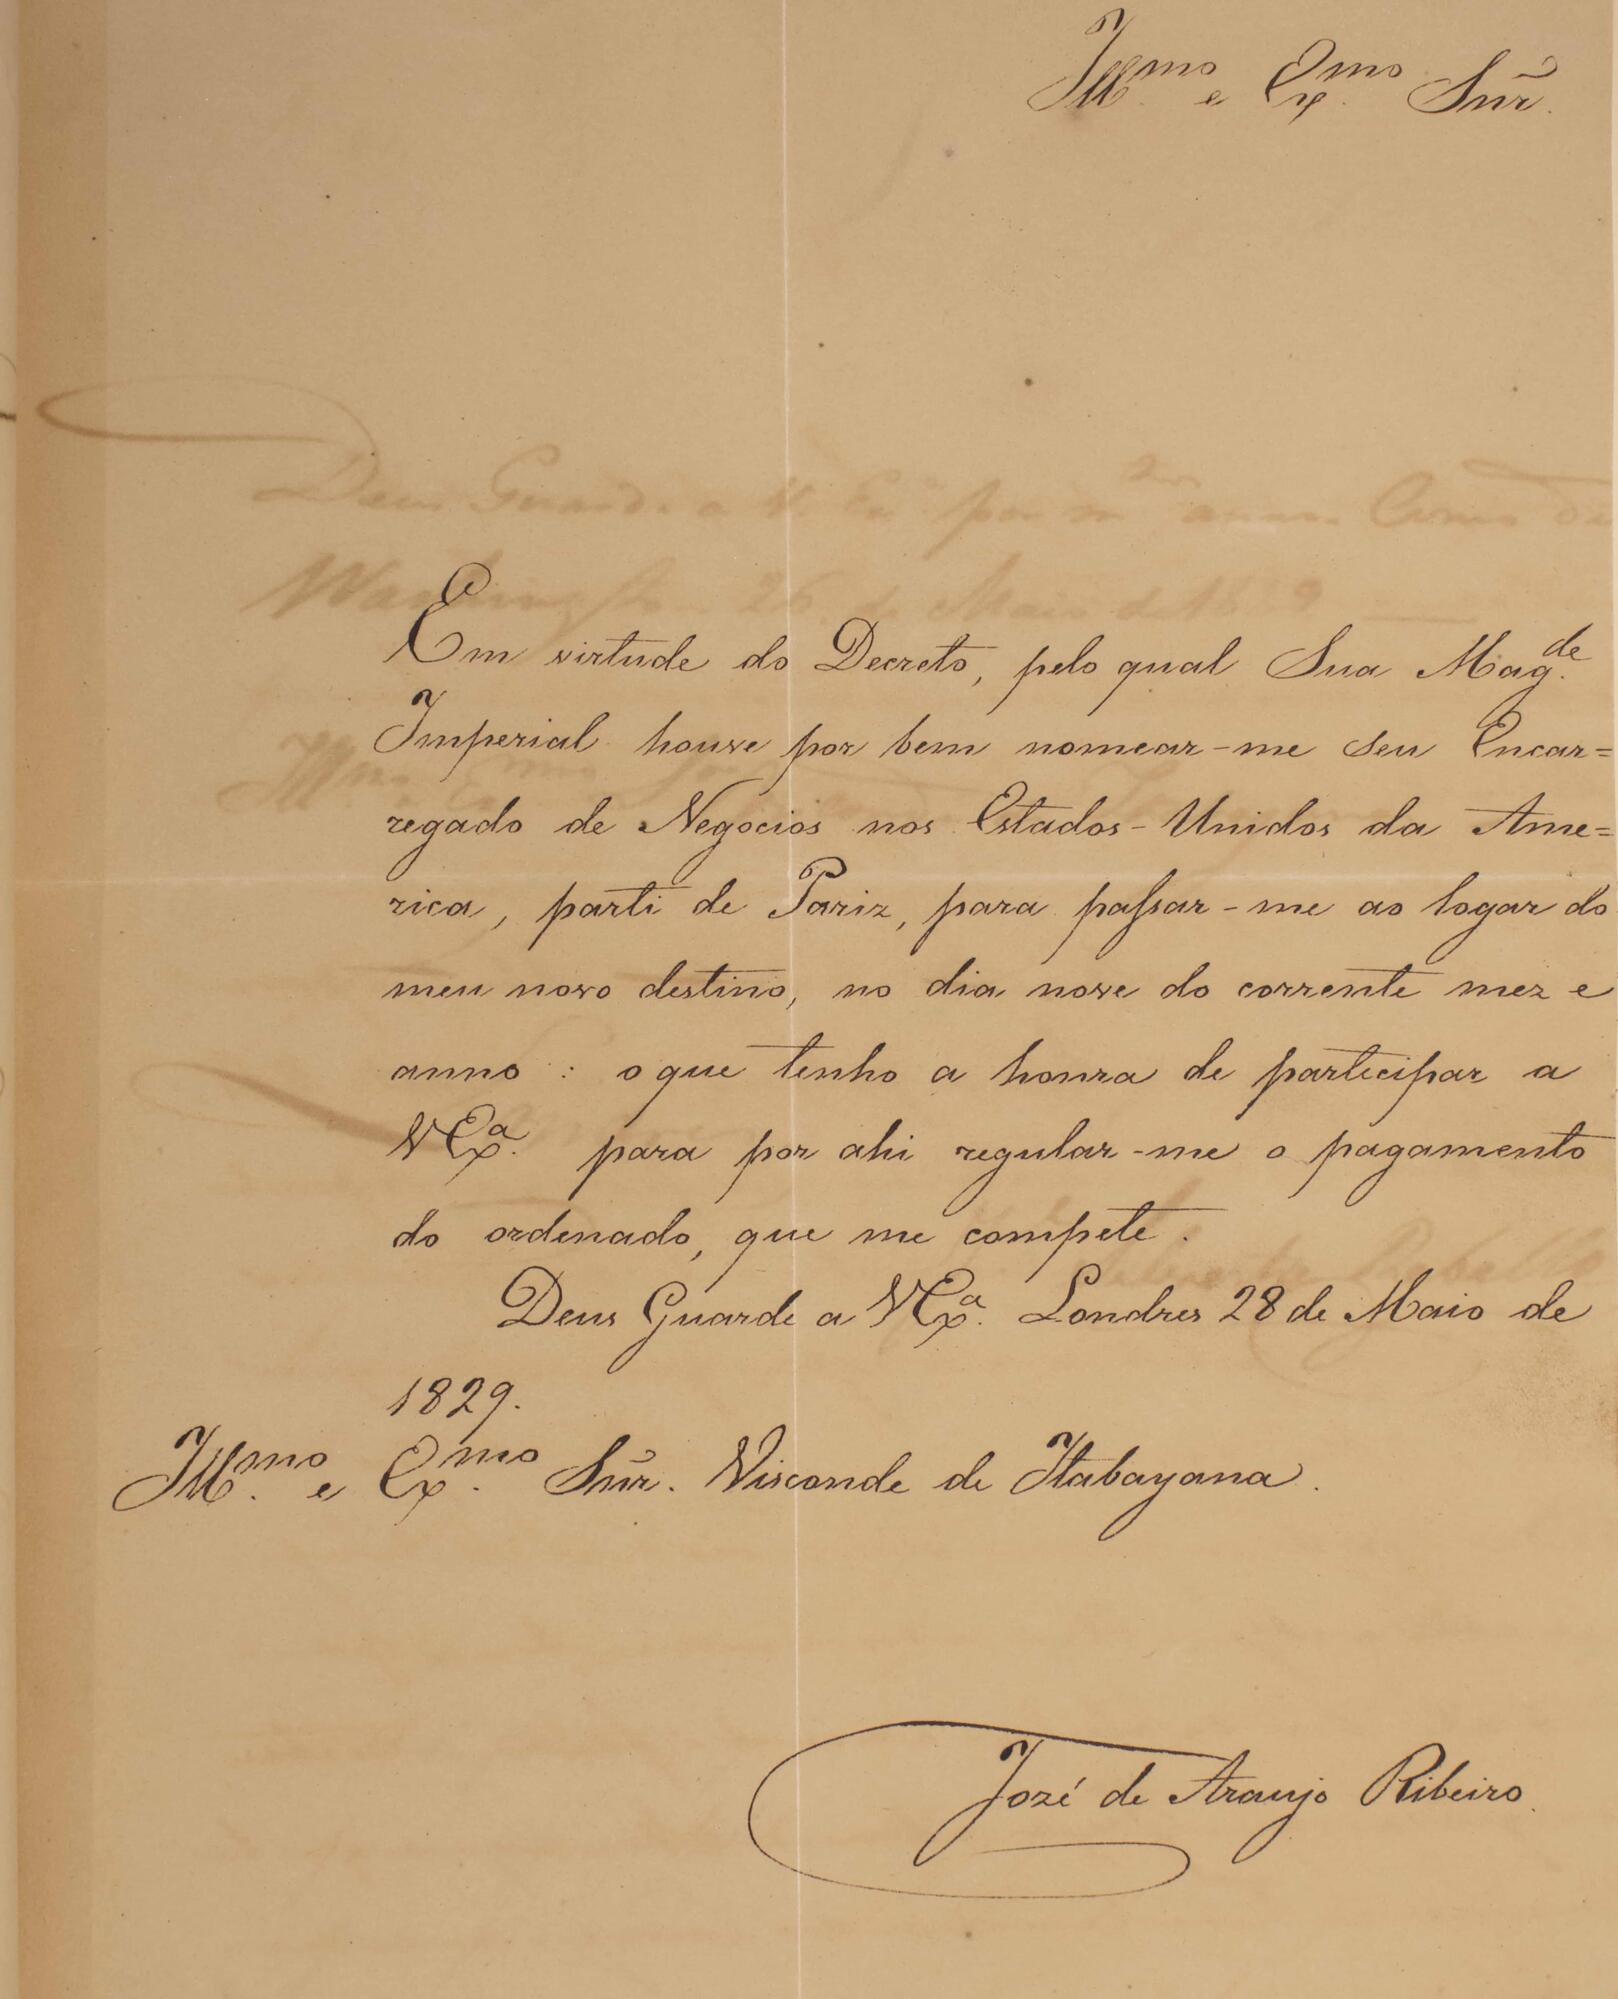 Illmo. e Exmo. Snr̃.
Em virtude do Decreto, pelo qual Sua Magde.
Imperial houve por bem nomear-me seu Encar=
regado de Negocios nos Estados-Unidos da Ame=
rica, parti de Pariz, para paſsar-me ao logar do
meu novo destino, no dia nove do corrente mez e
anno : o que tenho a honra de participar a
VExa. para por ahi regular-me o pagamento
do ordenado, que me compete.
Deus Guarde a VExa. Londres 28 de Maio de
1829.
Illmo. e Exmo. Snr̃. Visconde de Itabayana.
Jozé de Araujo Ribeiro.